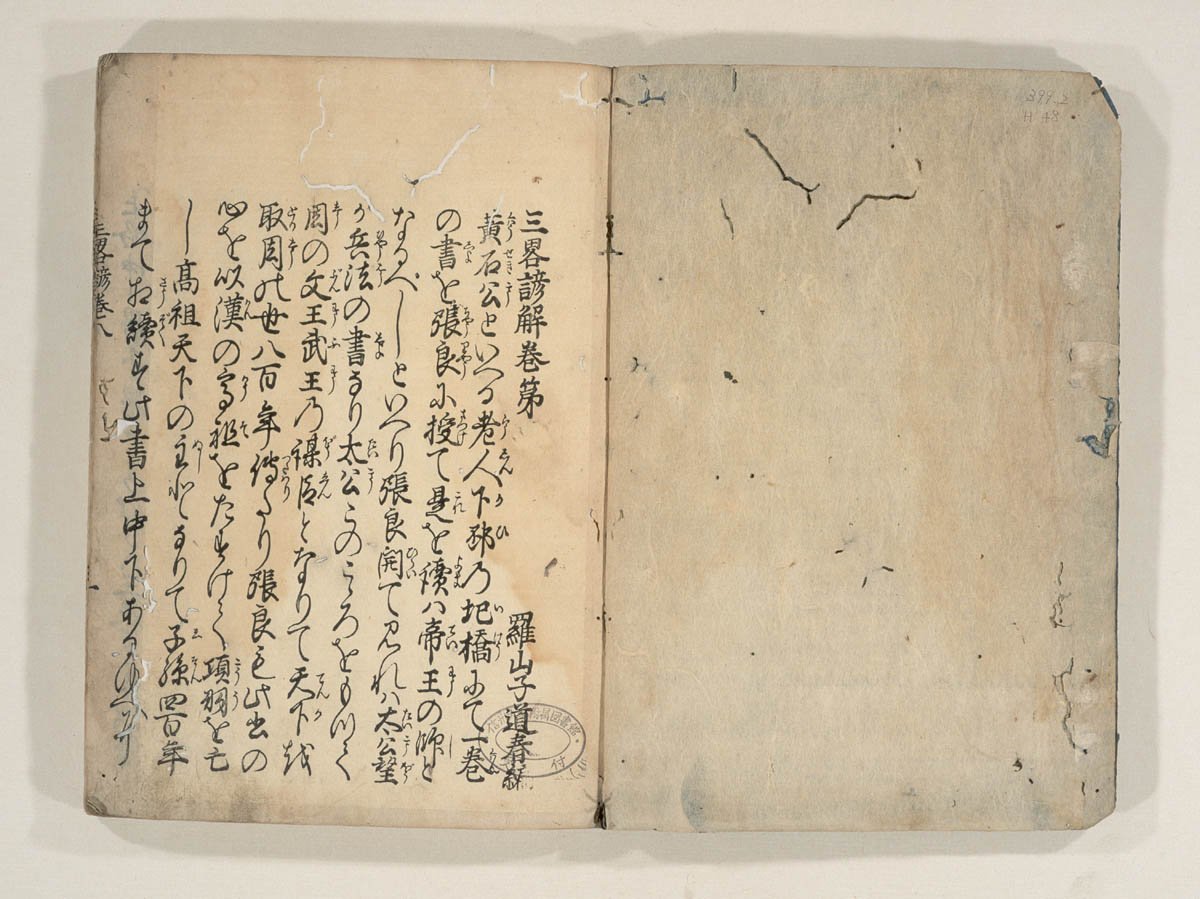 三畧諺解卷第
羅山子道春編
黄石公といへる老人下邳乃圯橋にて一巻
の書を張良に授て是を讀ハ帝王の師と
なるべしといへり張良開て見れハ太公望
か兵法の書なり太公このこゝろをもつて
周の文王武王乃謀臣となりて天下を
取周の世八百年傳たり張良も此書の
心を以漢の高祖をたすけて項羽を亡
し高祖天下の主となりて子孫四百年
まてお續す此書上中下あるゆへ
三畧諺巻
399.2
H 48